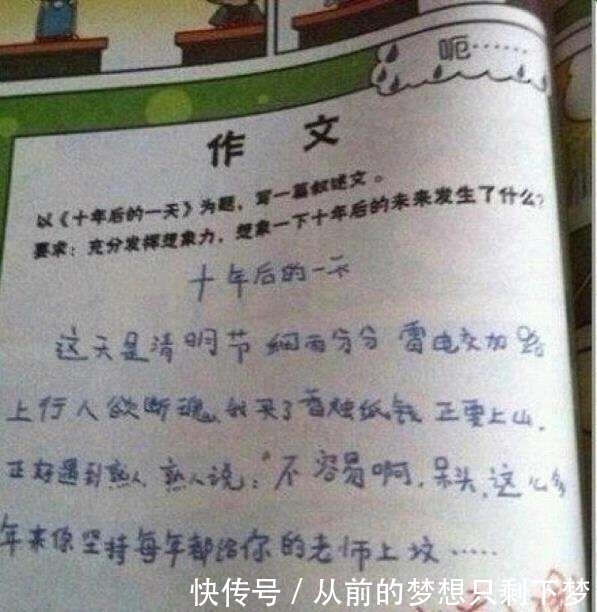 呃……
作 文
以《十年后的一天》为题，写一篇叙述文。
要求：充分发挥想象力，想象一下十年后的未来发生了什么？
十年后的一天
这天是清明节 细雨分分 雷电交加 路
上行人欲断魂，我买了香烛纸钱 正要上山，
正好遇到熟人 熟人说："不容易啊，呆头，这么多
年来你坚持每年都给你的老师上坟……
快传号 / 从前的梦想只剩下梦